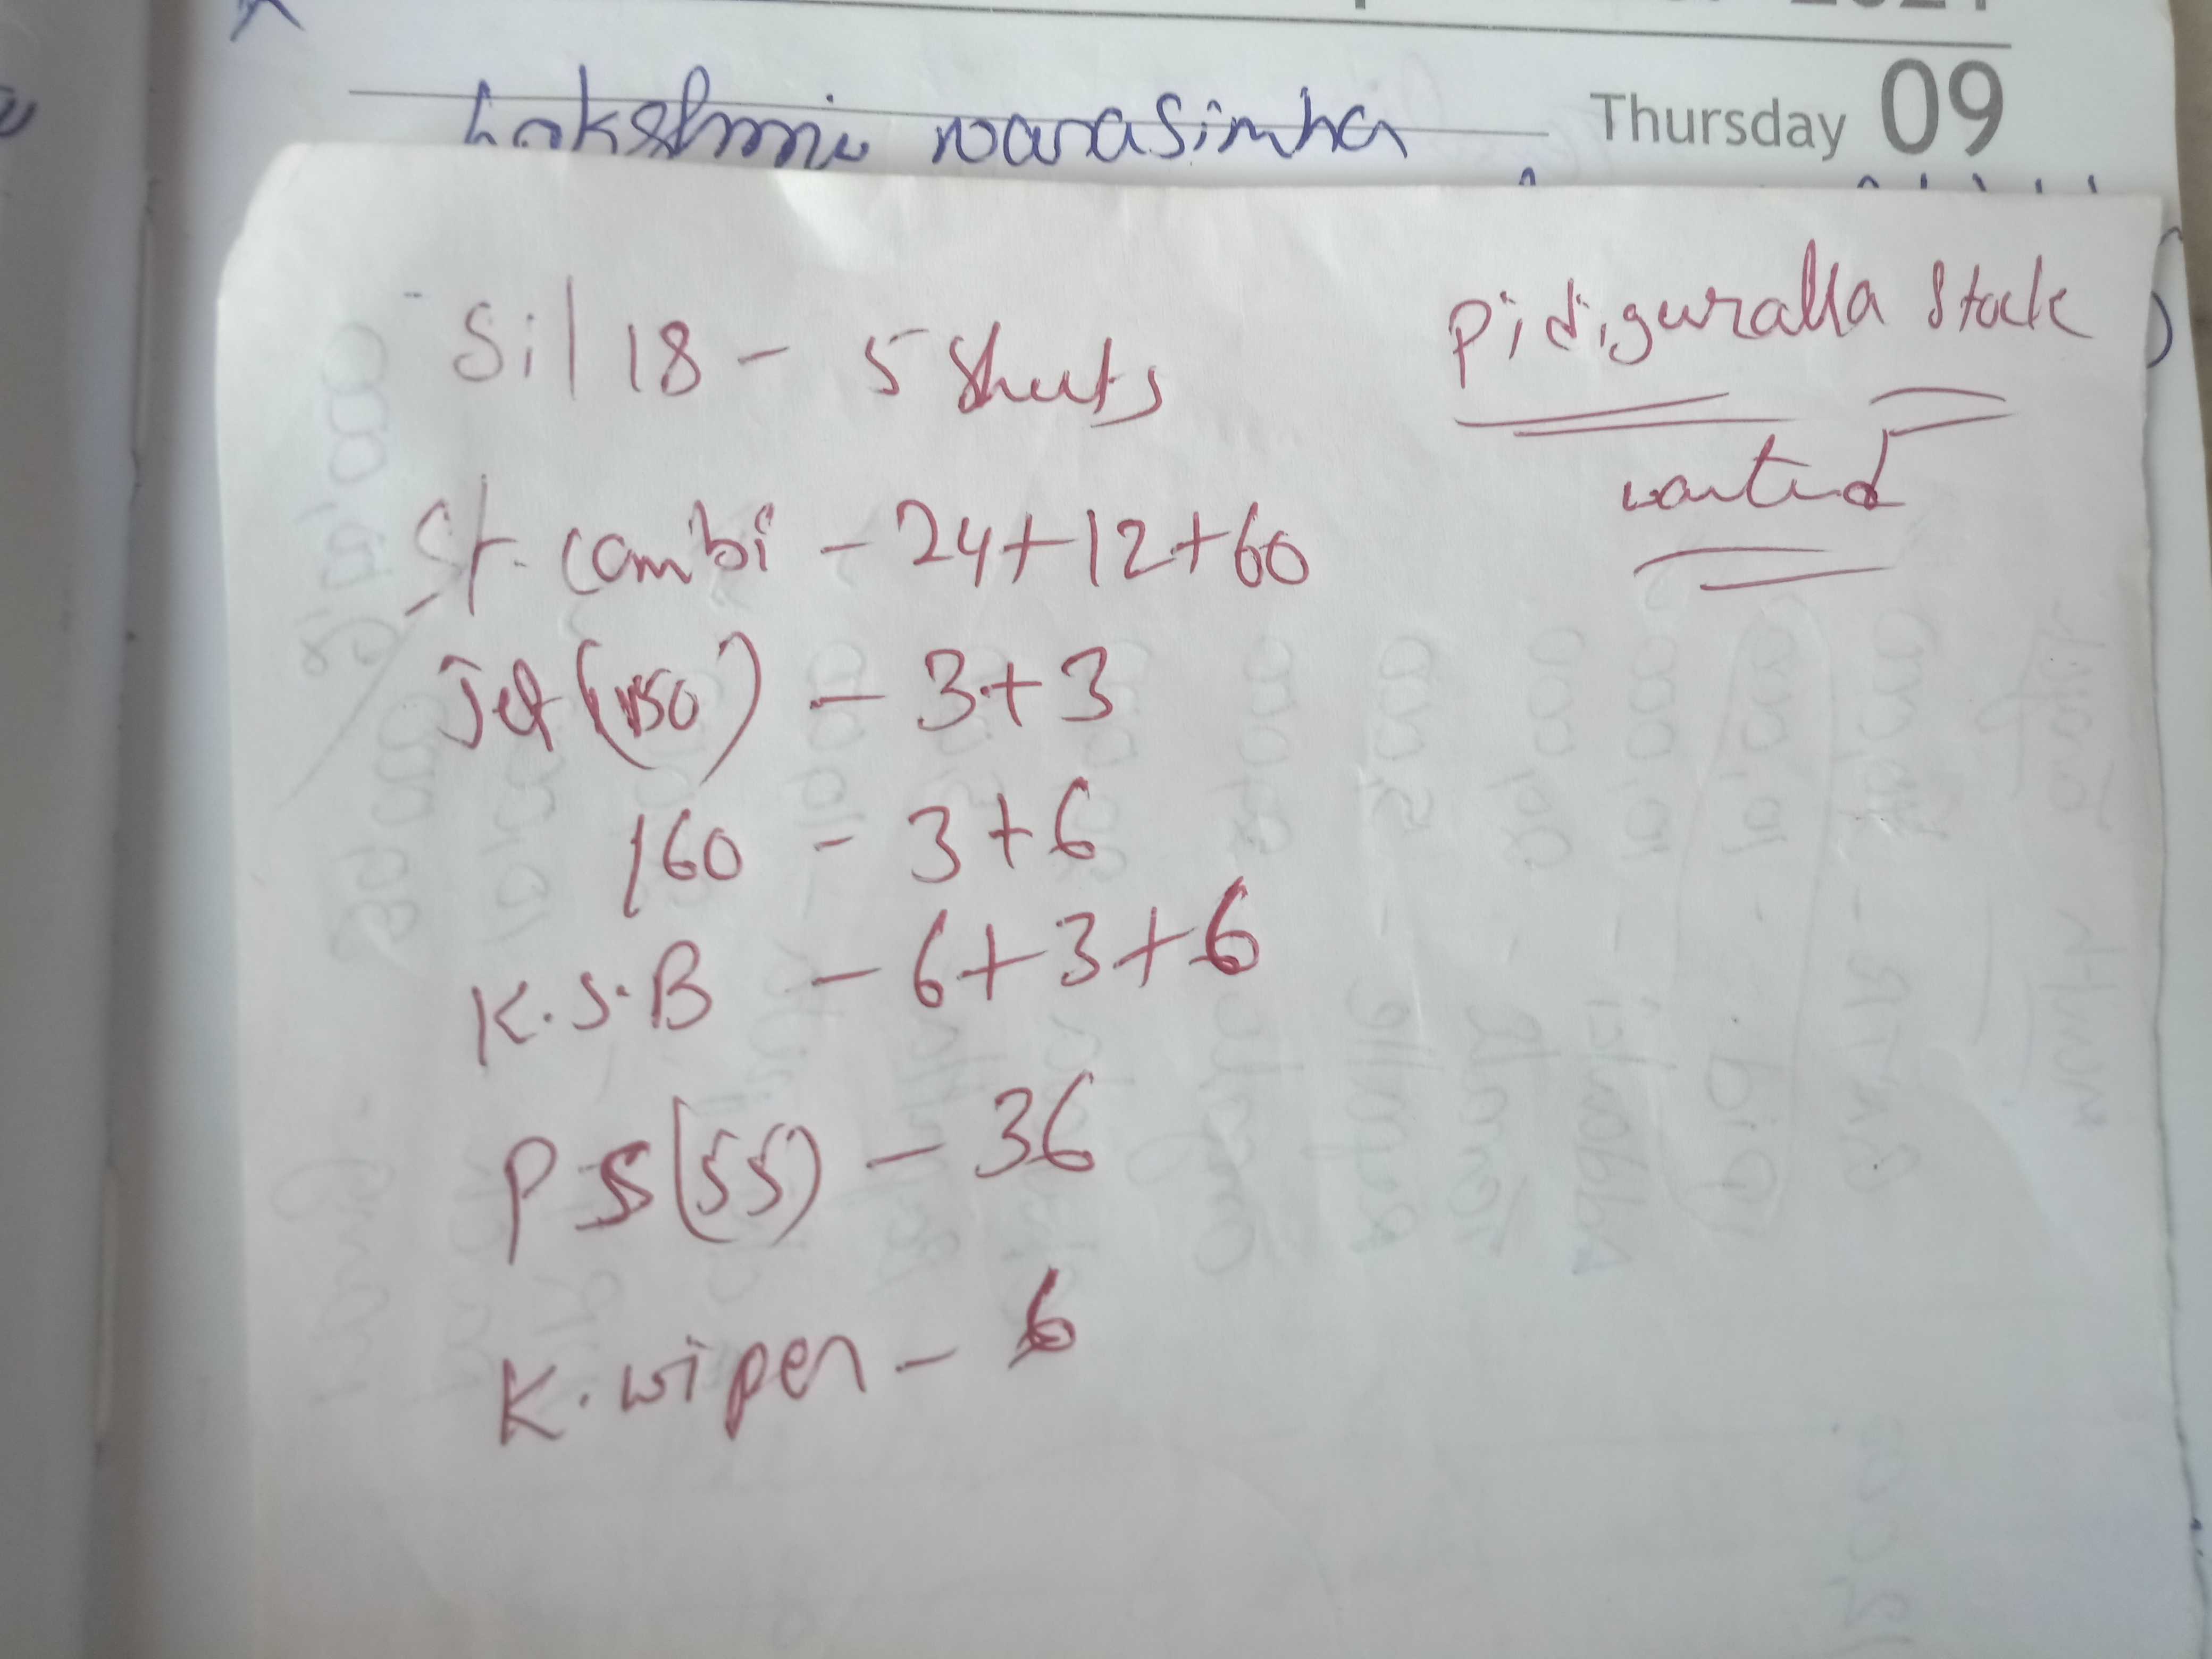 Thursday 09
Lakshmi narasimha
Pidiguralla Stock
wanted
Sil 18 - 5 Sheets
St. Combi - 24+12+60
Jet (150) - 3+3
160 - 3+6
K.S.B - 6+3+6
P S (55) - 36
K. wiper - 6